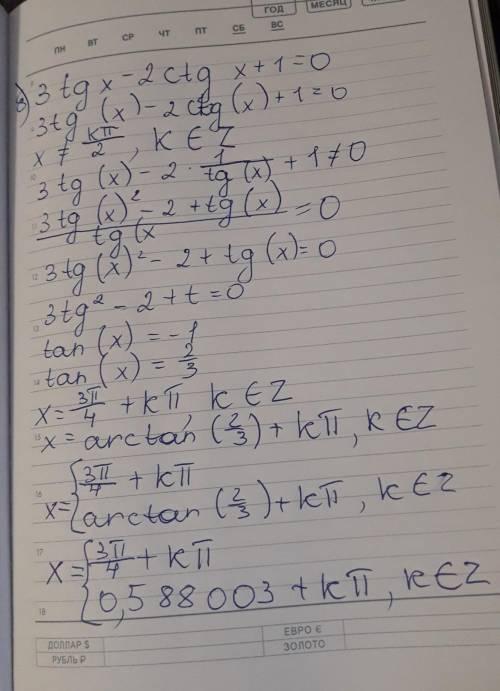 ГОД
МЕСЯЦ
ПН ВТ СР ЧТ ПТ СБ ВС
в) 3 tg x - 2 ctg x + 1 = 0
3tg (x) - 2 ctg (x) + 1 = 0
x ≠ kπ/2, k ∈ Z
10 3 tg (x) - 2 · 1/tg (x) + 1 ≠ 0
11 (3 tg (x)² - 2 + tg (x))/(tg (x) = 0
12 3 tg (x)² - 2 + tg (x) = 0
13 3tg² - 2 + t = 0
tan (x) = -1
14 tan (x) = 2/3
x = 3π/4 + kπ, k ∈ Z
15 x = arctan (2/3) + kπ, k ∈ Z
16 x = { 3π/4 + kπ
arctan (2/3) + kπ, k ∈ Z
17 x = { 3π/4 + kπ
{ 0,588003 + kπ, k ∈ Z
18
ДОЛЛАР $ ЕВРО €
РУБЛЬ ₽ ЗОЛОТО